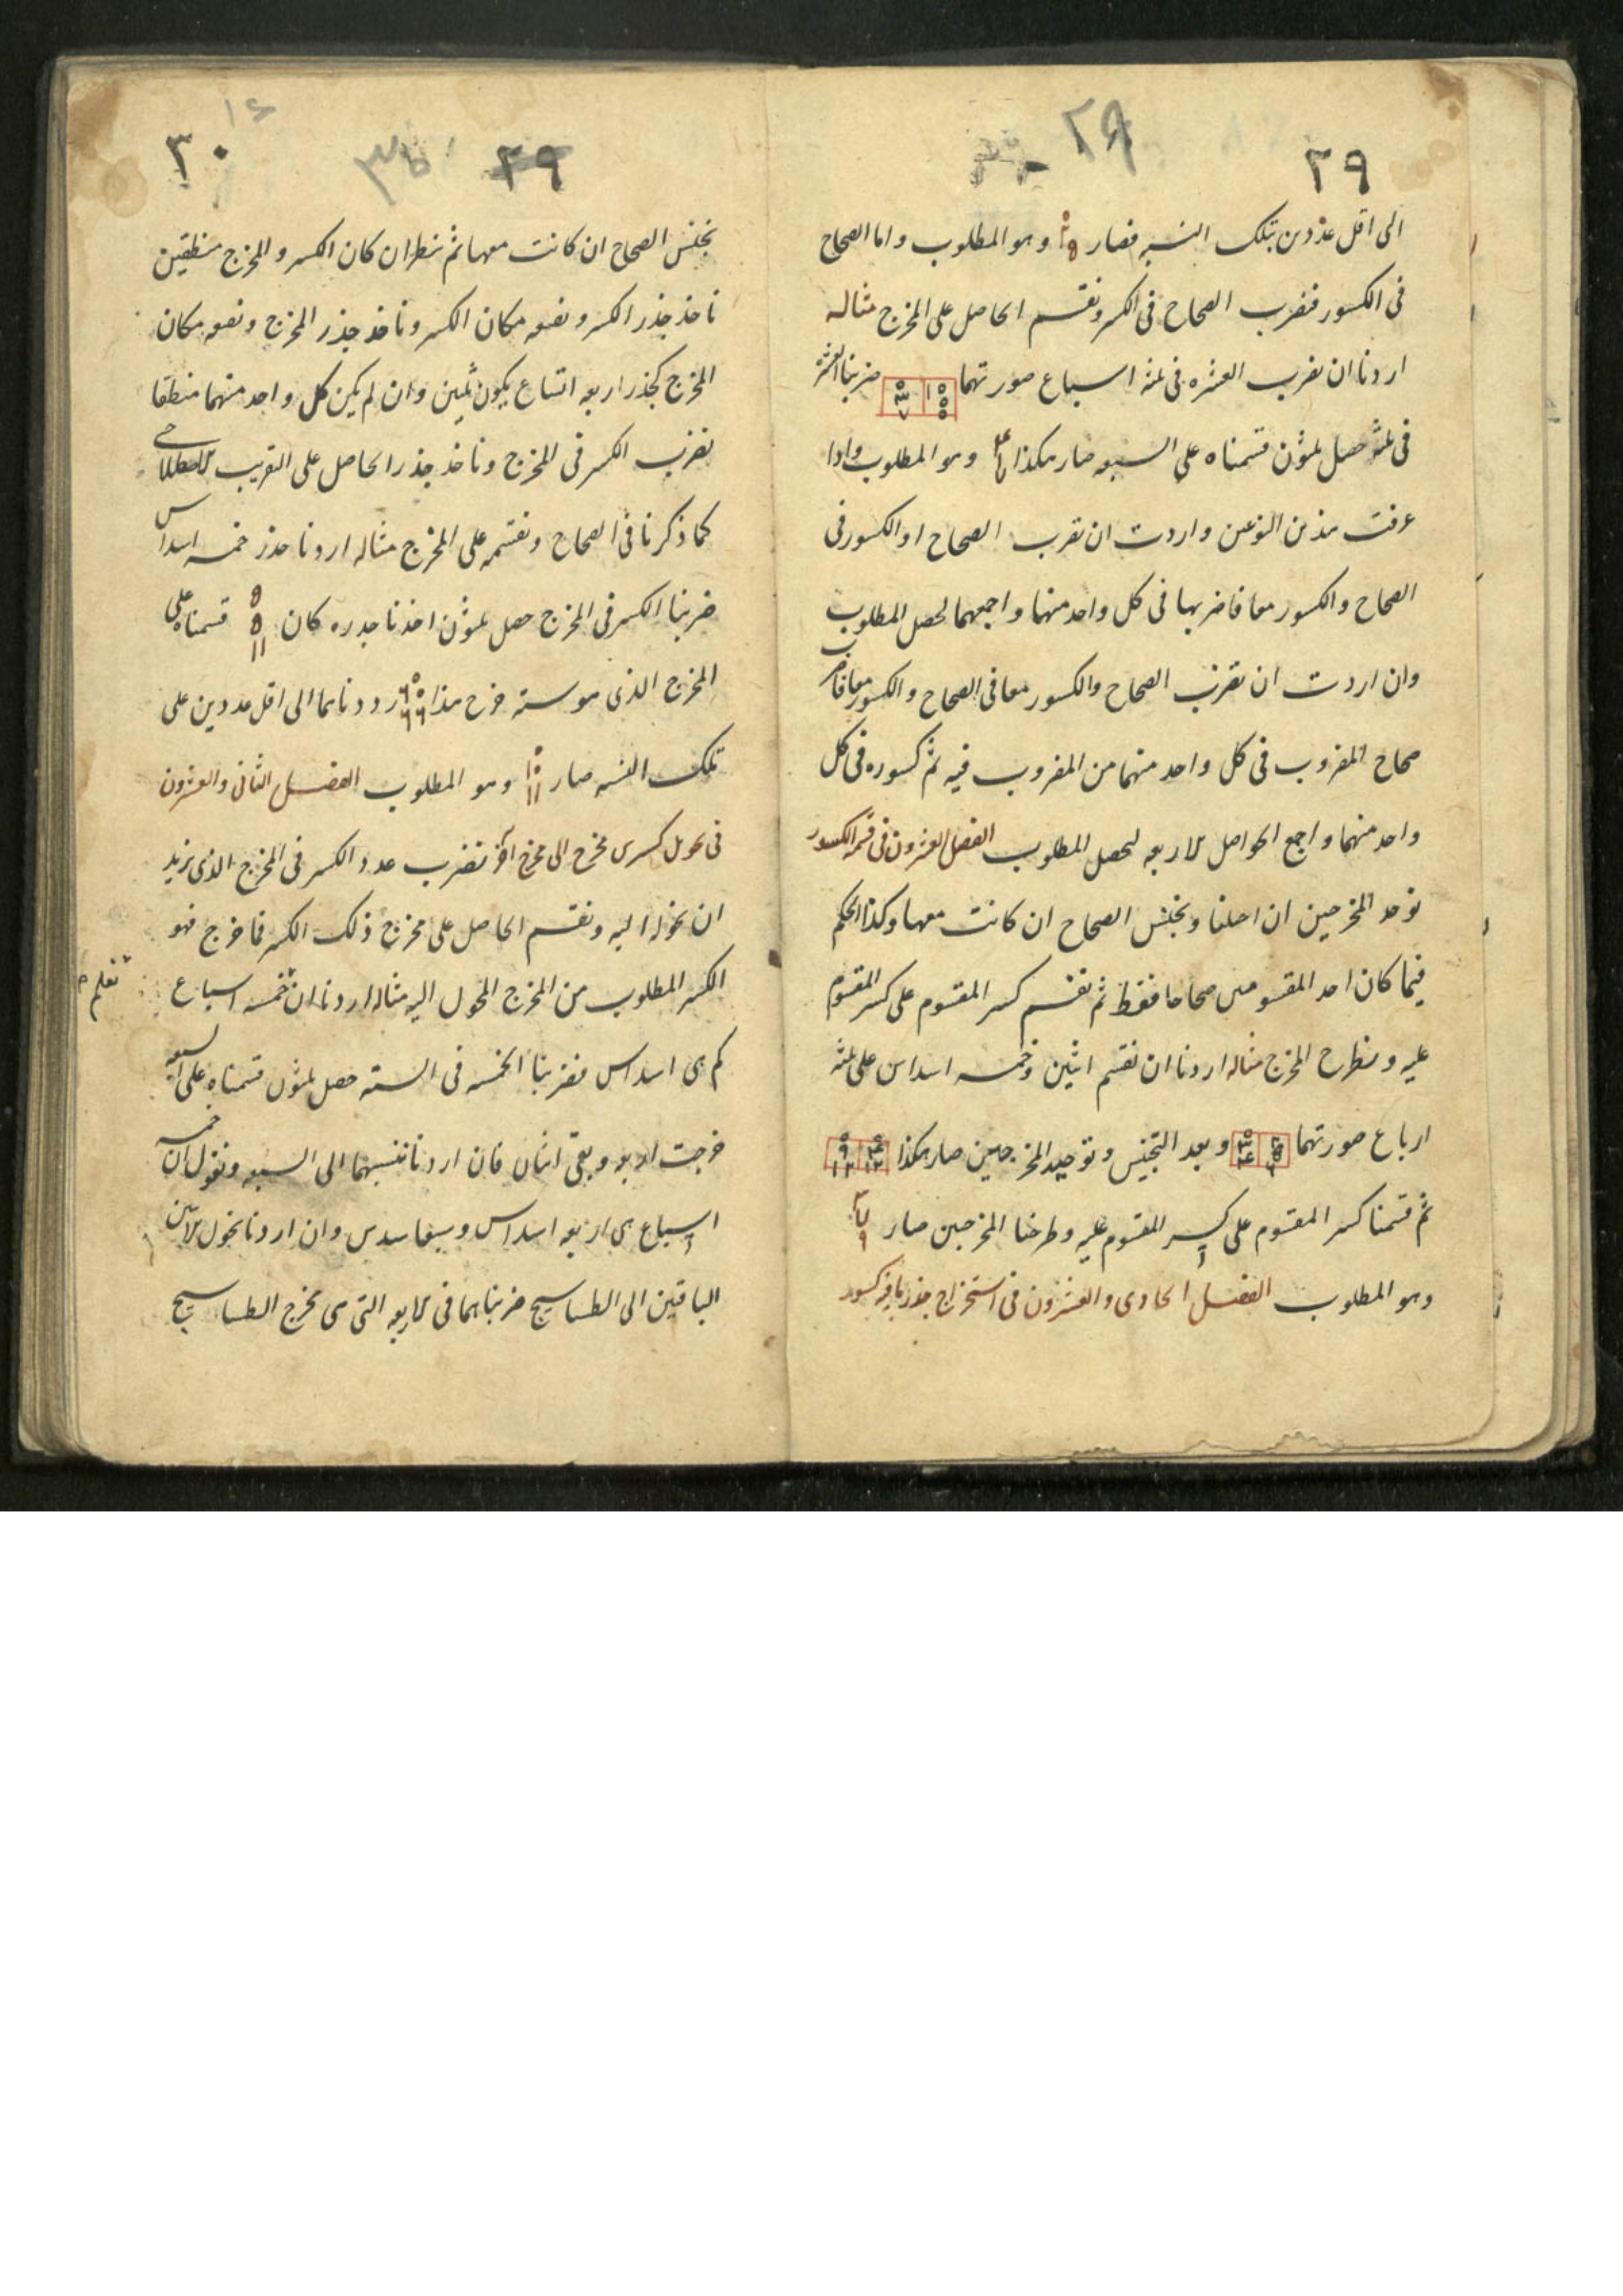 ٢٩
٢٩
الى اقل عددين بتلك النسبه فصار وهو المطلوب واما الصحاح
فى الكسور فنضرب الصحاح فى الكسر ونقسم الحاصل على المخرج مثاله
اردنا ان نضرب العشره فى ثلثه اسباع صورتهما ضربنا العشره
فى ثلثه حصل ثلثون قسمناه على السبعه صار هكذا وهو المطلوب واذا
عرفت هذين النوعين واردت ان تضرب الصحاح او الكسور فى
الصحاح والكسور معا فاضربها فى كل واحد منهما واجمعهما لحصل المطلوب
وان اردت ان تضرب الصحاح والكسور معا فى الصحاح والكسور معا فاضرب
صحاح المضروب فى كل واحد منهما من المضروب فيه ثم كسوره فى كل
واحد منهما واجمع الحواصل الاربعه ليحصل المطلوب الفصل العشرون فى قسمة الكسور
نوحد المخرجين ان اختلفا ونجنس الصحاح ان كانت معها وكذا الحكم
فيما كان احد المقسومين صحاحا فقط ثم نقسم كسر المقسوم على كسر المقسوم
عليه ونطرح المخرج مثاله اردنا ان نقسم اثنين وخمسه اسداس على ثلثه
ارباع صورتهما وبعد التجنيس وتوحيد المخرجين صار هكذا
ثم قسمنا كسر المقسوم على كسر المقسوم عليه وطرحنا المخرجين صار
وهو المطلوب الفصل الحادى والعشرون فى استخراج جذر ما فيه كسور
٣٠
١٤
٢٩
نجنس الصحاح ان كانت معها ثم ننظر ان كان الكسر والمخرج منطقين
ناخذ جذر الكسر ونضعه مكان الكسر وناخذ جذر المخرج ونضعه مكان
المخرج كجذر اربعه اتساع يكون ثلثين وان لم يكن كل واحد منهما منطقا
نضرب الكسر فى المخرج وناخذ جذر الحاصل على التقريب الاصطلاحى
كما ذكرنا فى الصحاح ونقسمه على المخرج مثاله اردنا جذر خمسه اسداس
ضربنا الكسر فى المخرج حصل ثلثون اخذنا جذره كان قسمناه على
المخرج الذى هو سته خرج هذا رددناهما الى اقل عددين على
تلك النسبه صار وهو المطلوب الفصل الثانى والعشرون
فى تحويل كسر من مخرج الى مخرج آخر نضرب عدد الكسر فى المخرج الذى نريد
ان نحوله اليه ونقسم الحاصل على مخرج ذلك الكسر فما خرج فهو
الكسر المطلوب من المخرج المحول اليه مثاله اردنا ان خمسه اسباع
نعلم
كم هى اسداس فضربنا الخمسه فى السته حصل ثلثون قسمناه على السبعه
خرجت اربعه وبقى اثنان فان اردنا ننسبهما الى السبعه ونقول ان خمسه
اسباع هى اربعه اسداس وسبعا سدس وان اردنا نحول الاثنين
الباقيين الى الطساسيج ضربناهما فى الاربعه التى هى مخرج الطساسيج